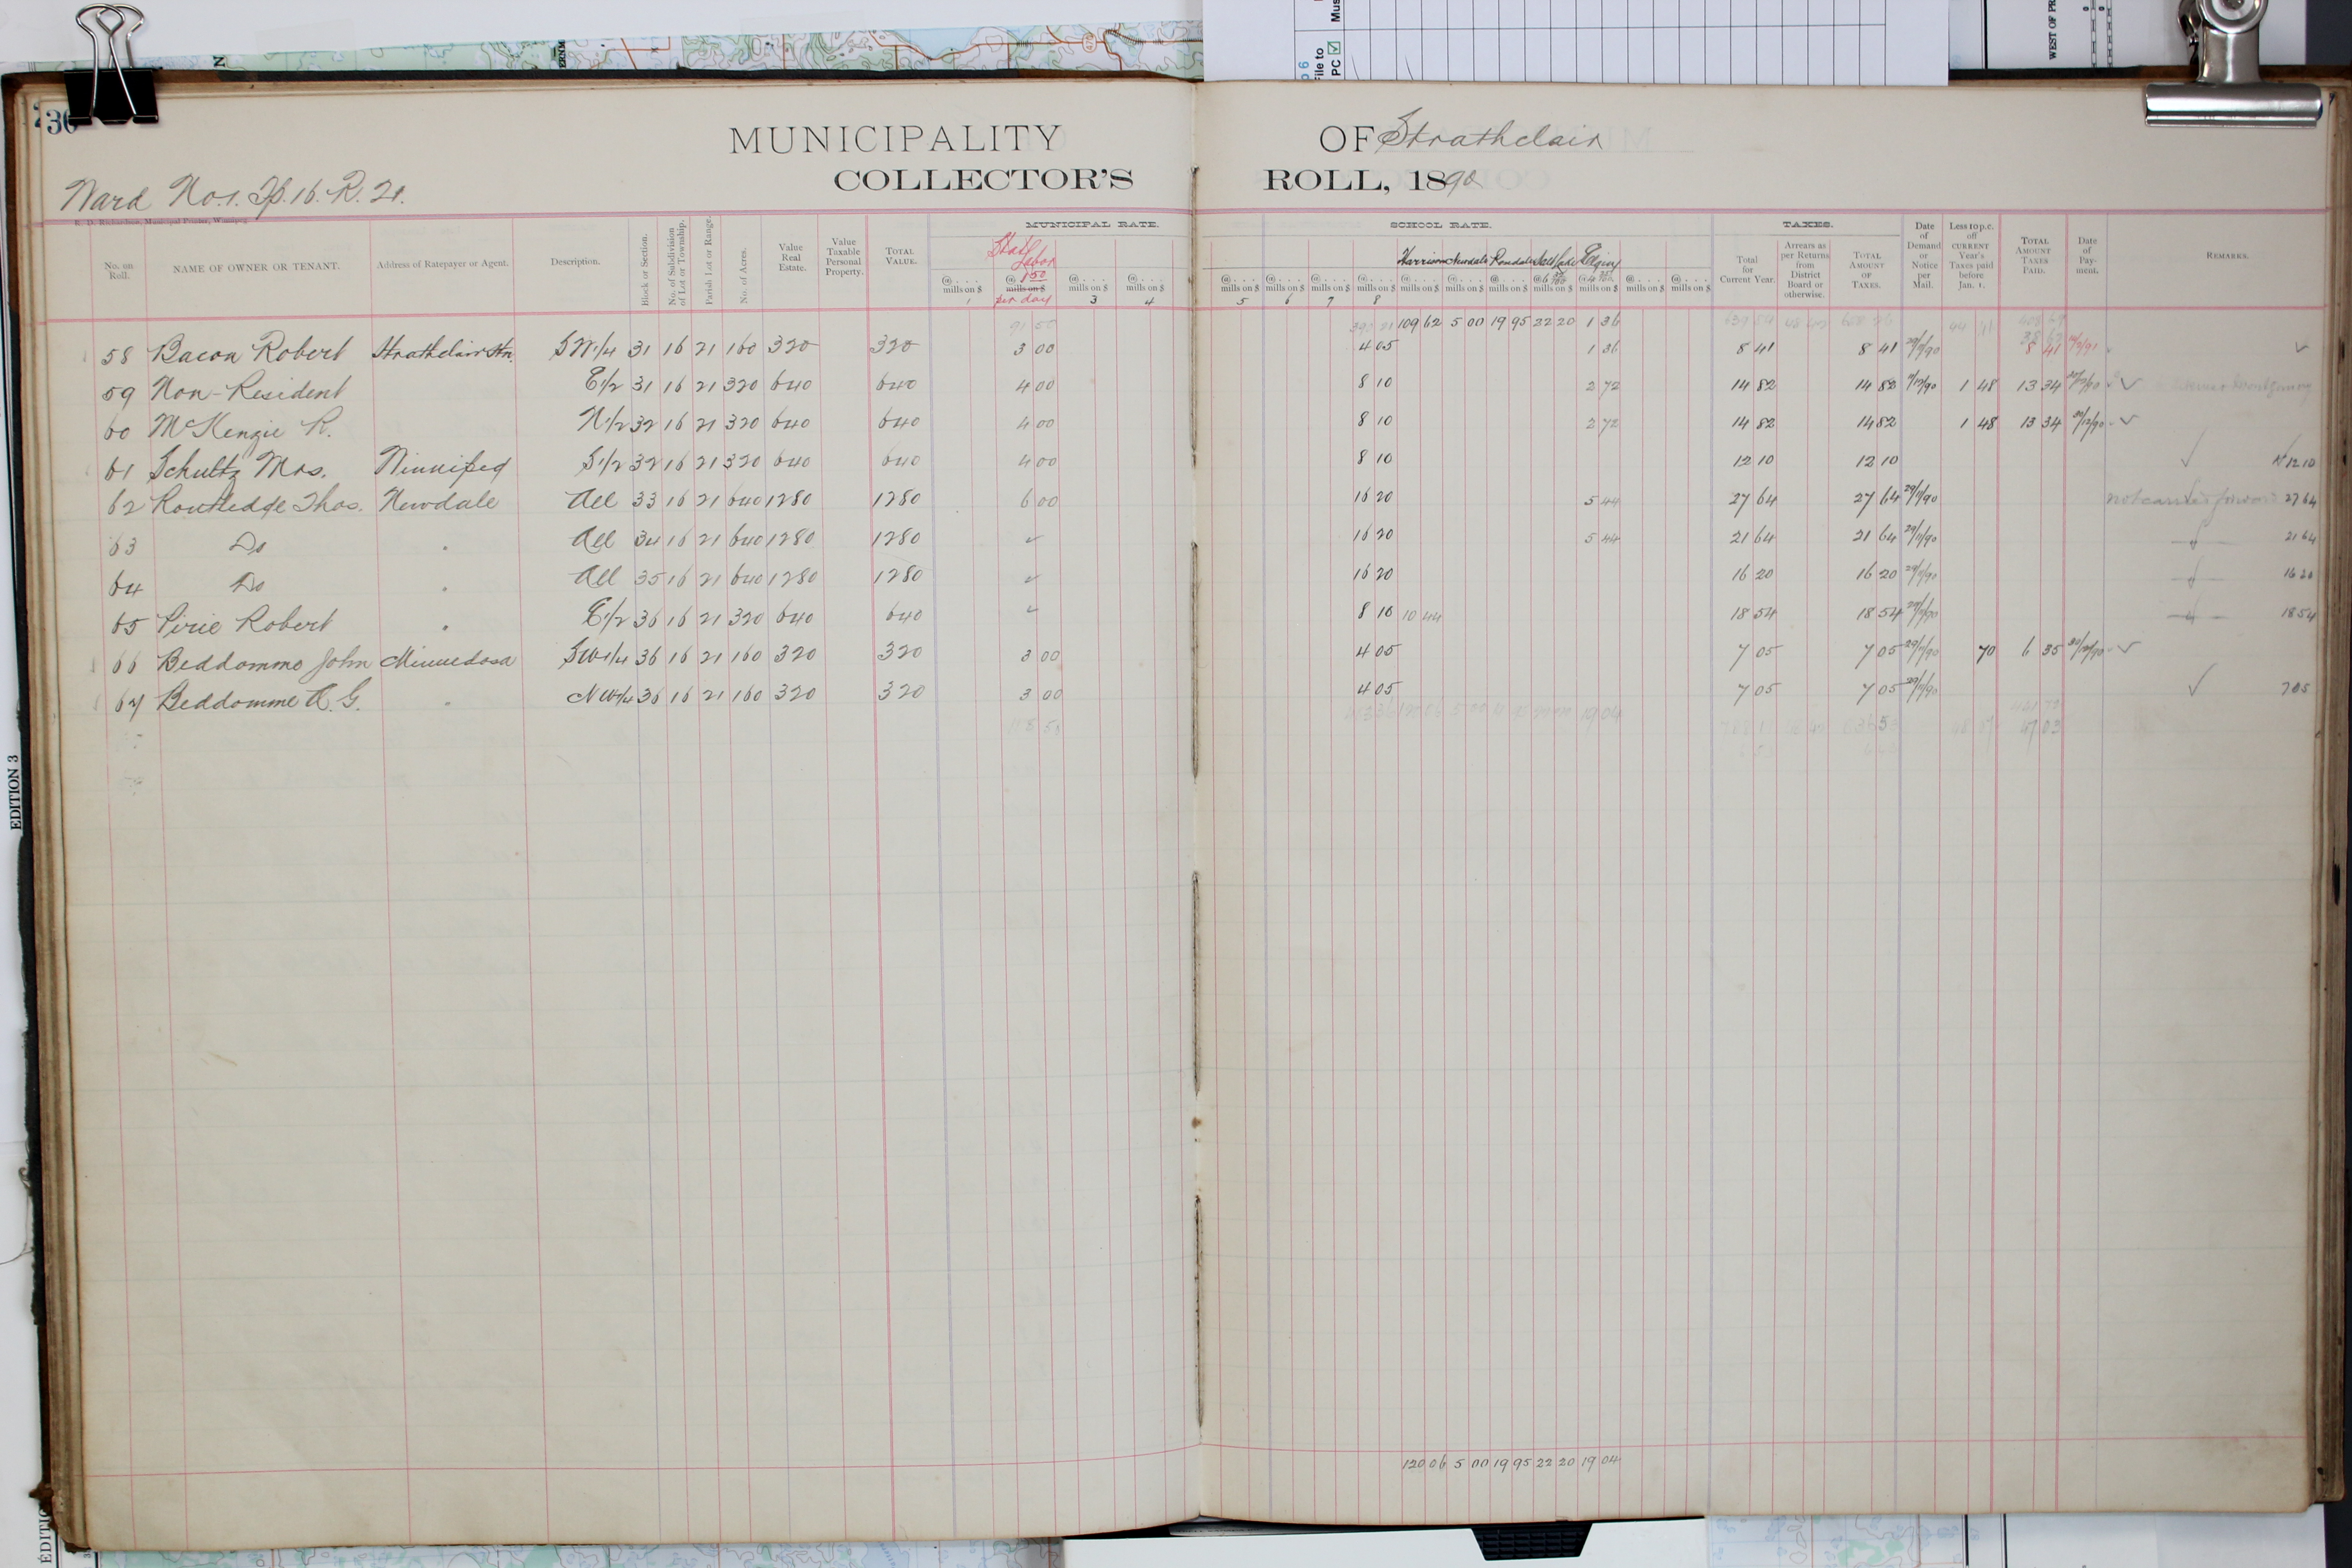 30
MUNICIPALITY OF Strathclair
COLLECTOR'S ROLL, 1890
Ward No.1. Tp.16. R. 21.
E. D. Richardson, Municipal Printer, Winnipeg.
MUNICIPAL RATE. SCHOOL RATE. TAXES.
No. on Roll. NAME OF OWNER OR TENANT. Address of Ratepayer or Agent. Description. Block or Section. No. of Subdivision of Lot or Township. Parish Lot or Range. No. of Acres. Value Real Estate. Value Taxable Personal Property. TOTAL VALUE. Stat. Labor @ 1 50 mills on $ per day Harrison Newdale Rondale Salt Lake Elgin Total for Current Year. Arrears as per Returns from District Board or otherwise. TOTAL AMOUNT OF TAXES. Date of Demand or Notice per Mail. Less 10 p.c. off CURRENT Year's Taxes paid before Jan. 1. TOTAL AMOUNT TAXES PAID. Date of Payment. REMARKS.
1 3 4 5 6 7 8
91 50 109 62 5 00 19 95 22 20 1 36
58 Bacon Robert Strathclair Stn. SW1/4 31 16 21 160 320 320 3 00 4 05 1 36 8 41 8 41 29/11/90 8 41
59 Non-Resident E1/2 31 16 21 320 640 640 4 00 8 10 2 72 14 82 14 82 1 48 13 34
60 McKenzie R. N1/2 32 16 21 320 640 640 4 00 8 10 2 72 14 82 14 82 1 48 13 34
61 Schultz Mrs. Winnipeg S1/2 32 16 21 320 640 640 4 00 8 10 12 10 12 10 ✓ 12 10
62 Routledge Thos. Newdale All 33 16 21 640 1280 1280 6 00 16 20 5 44 27 64 27 64 29/11/90 not carried forward 27 64
63 Do " All 34 16 21 640 1280 1280 ✓ 16 20 5 44 21 64 21 64 29/11/90 21 64
64 Do " All 35 16 21 640 1280 1280 ✓ 16 20 16 20 16 20 29/11/90 16 20
65 Pirie Robert " E1/2 36 16 21 320 640 640 ✓ 8 10 10 44 18 54 18 54 29/11/90 18 54
66 Beddomme John Minnedosa SW1/4 36 16 21 160 320 320 3 00 4 05 7 05 7 05 29/11/90 70 6 35 ✓
67 Beddomme A. G. " NW1/4 36 16 21 160 320 320 3 00 4 05 7 05 7 05 29/11/90 ✓ 7 05
120 06 5 00 19 95 22 20 19 04
EDITION 3